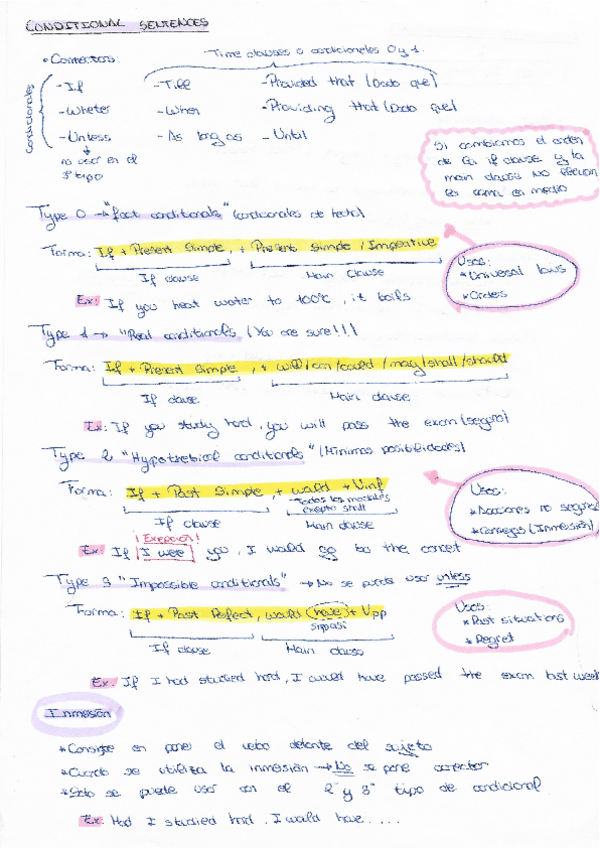 CONDITIONAL SENTENCES
Time clauses o condicionales 0 y 1.
• Conectors:
Condicionales
- If - Till - Provided that (Dado que)
- Wheter - When - Providing that (Dado que)
- Unless - As long as - Until
no usar en el 3er tipo
Si cambiamos el orden
de la if clause y la
main clause NO
la coma en medio
Type 0 → "fact conditionals" (condicionales de hecho)
Forma: If + Present Simple, + Present Simple / Imperative
If clause Main Clause
Usos:
* Universal laws
* Orders
Ex: If you heat water to 100ºC, it boils
Type 1 → "Real conditionals (You are sure!!!)
Forma: If + Present Simple, + will/can/could/may/shall/should
If clause Main clause
Ex: If you study hard, you will pass the exam (seguro)
Type 2 "Hypothetical conditionals" (Minimas posibilidades)
Forma: If + Past Simple, + would + Vinf
- Todos los modales
excepto shall
If clause Main clause
Usos:
* Acciones no seguras
* Consejos (Inmersión)
¡Excepcion!
Ex: If I were you, I would go to the concet
Type 3 "Impossible conditionals" → No se puede usar unless
Forma: If + Past Perfect, would (have) + Vpp
If clause Main clause
Usos:
* Past situations
* Regret
Ex: If I had studied hard, I would have passed the exam last week
Inmersión
* Consiste en poner el verbo delante del sujeto
* Cuando se utiliza la inmersión → No se pone conector
* Solo se puede usar con el 2º y 3º tipo de condicional
Ex: Had I studied hard, I would have....